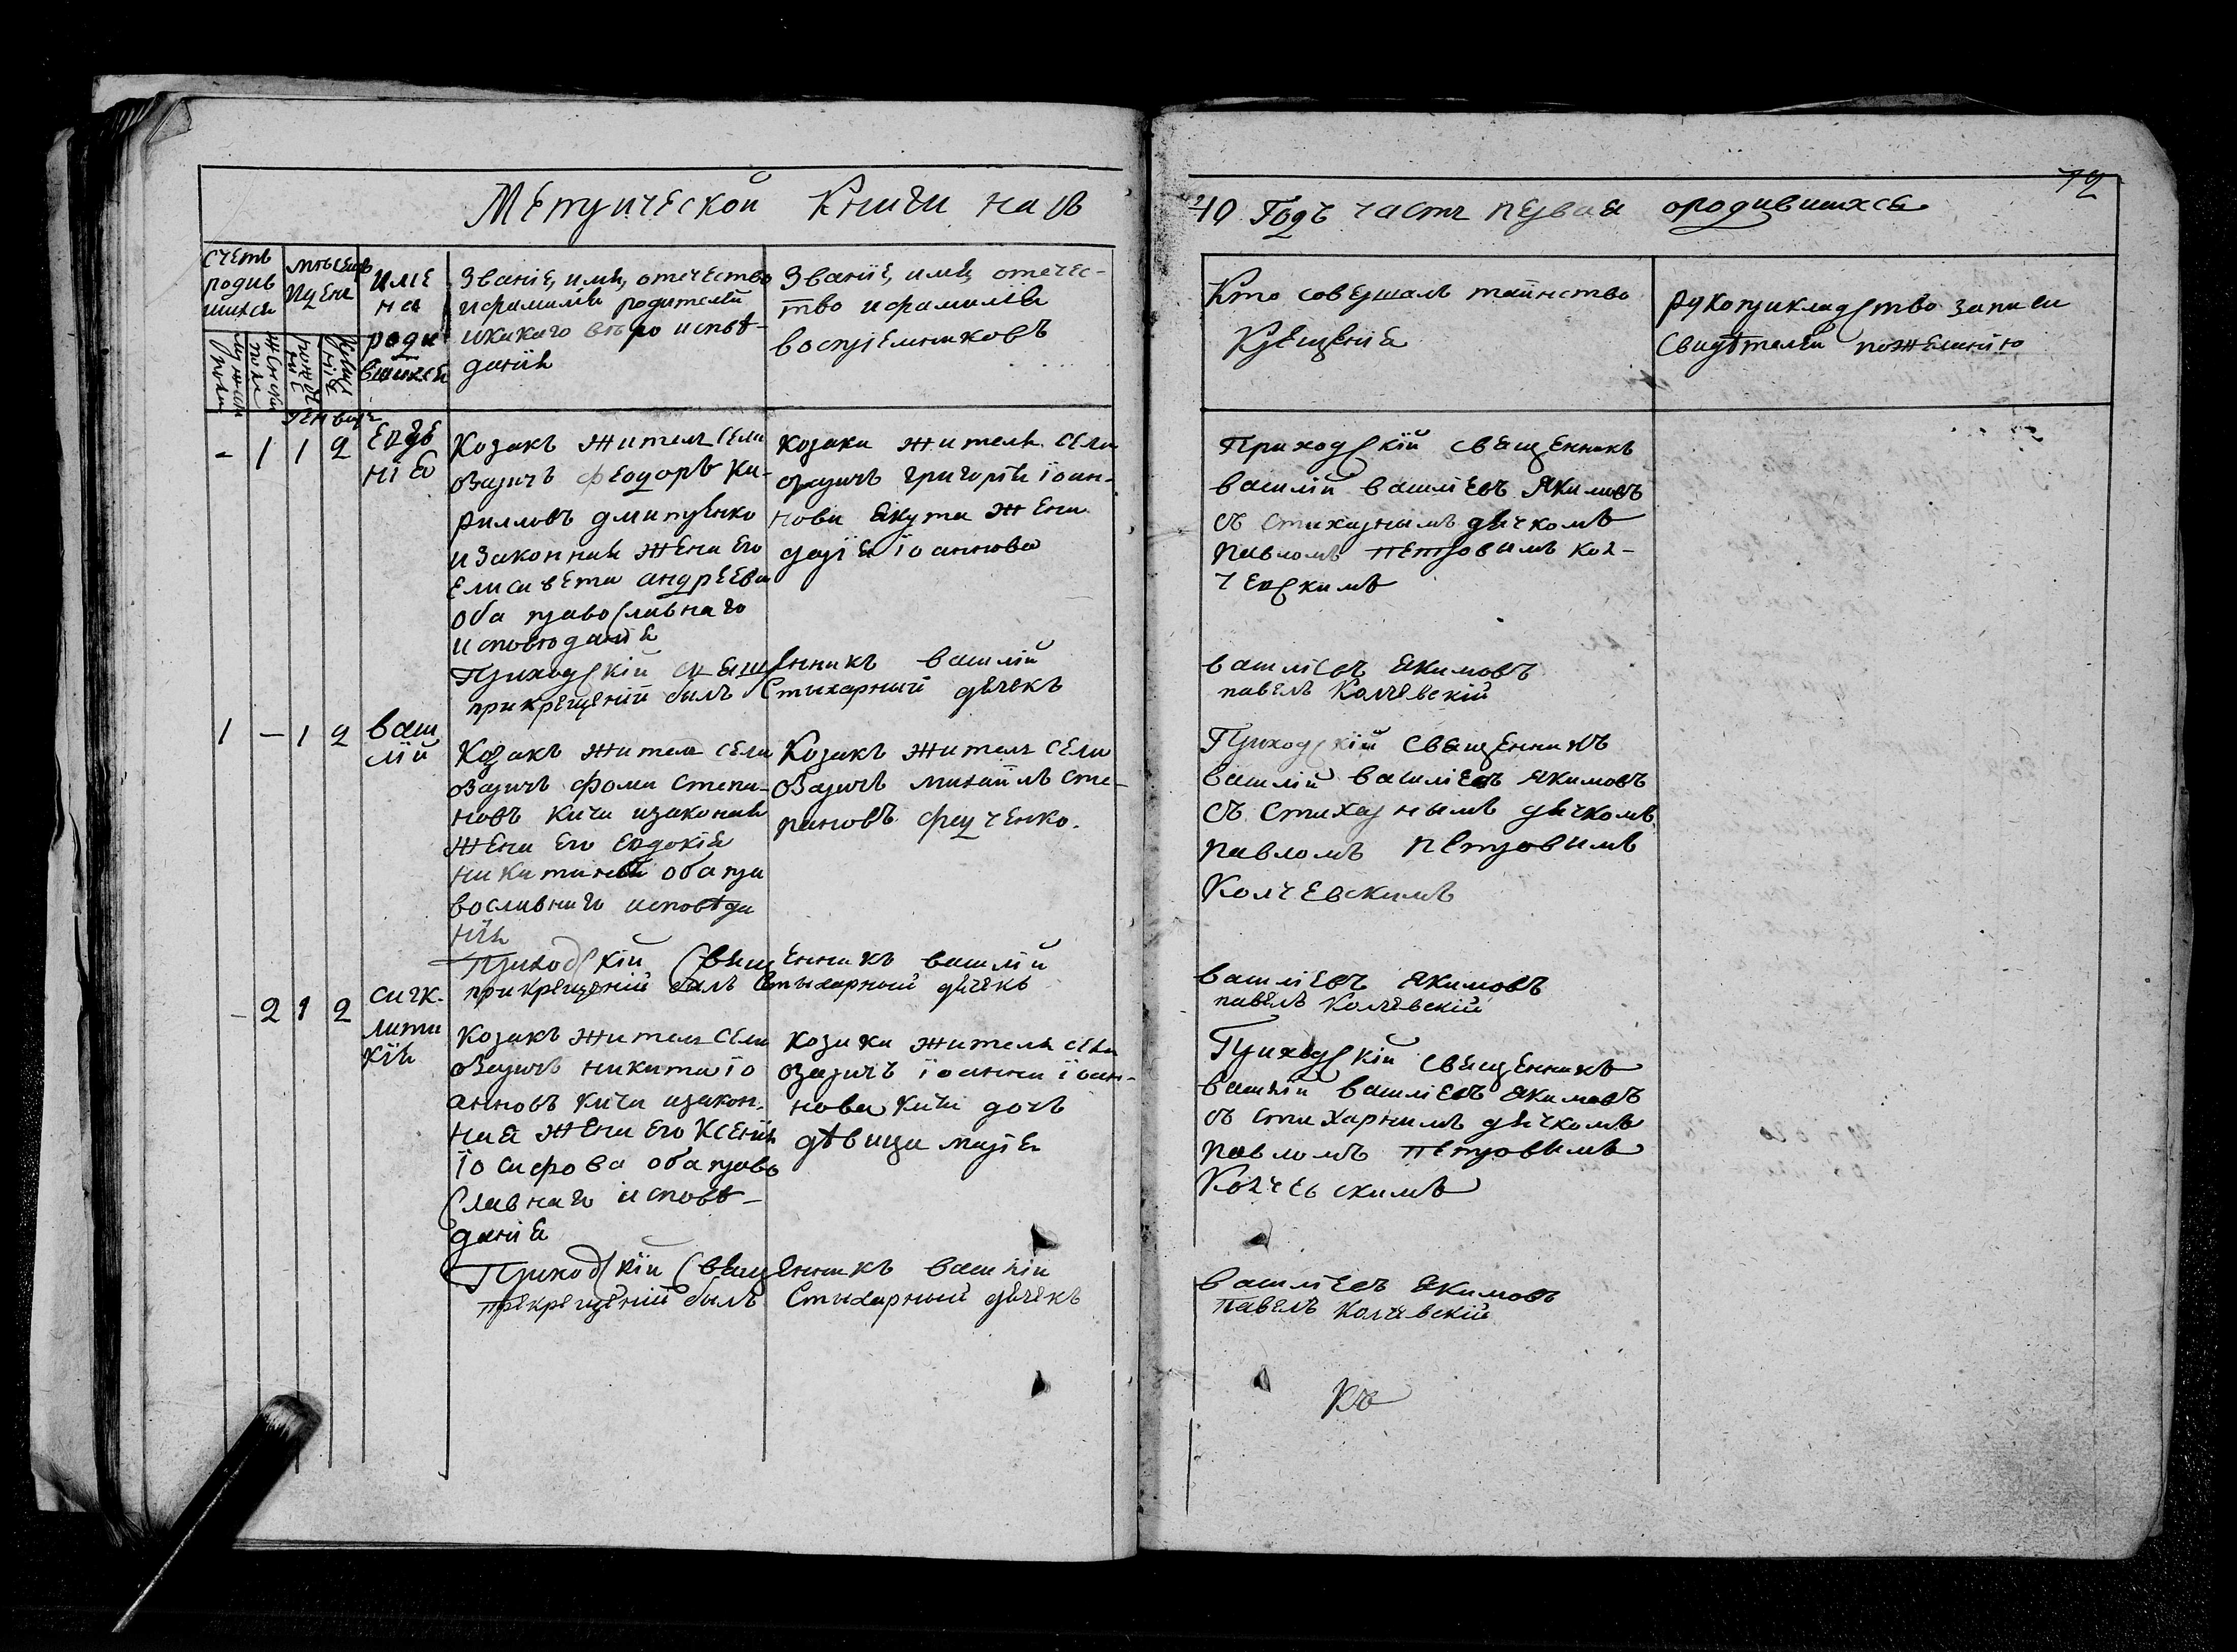 Метрической Книги на 18
40 Годъ часть первая ородившихся
12
Счетъ
родив
шихся
мѣсецъ
Име
на
роди
вшихся
Званіе, имя, отчество
ифамилія родителей
икакаго вѣроисповѣ-
данія
Званіе, имя, отечес-
тво ифамилія
воспріемниковъ
Кто совершалъ таинство
Крещенія
рукоприкладство записи
свидѣтелей пожеланію
мужеска
пола
женска
пола
рожде
ніе
креще
ніе
Генваря
- 1 1 2
Евдо
Козакъ житель села
Озаричъ Феодоръ Ки-
рилловъ Дмитренко
изаконная жена его
Елисавета андреева
оба православнаго
исповѣданія
козаки жители села
озаричъ григорій іоан-
нова жена
дарія іоаннова
Приходскій священникъ
василій василіевъ Якимовъ
съ стихарнымъ дячкомъ
павломъ петровымъ кол-
чевскимъ
Приходскій священникъ василій
василіевъ Якимовъ
прикрещеніи былъ Стихарный дячекъ
павелъ Колчевскій
1 - 1 2
васи
лій
Козакъ житель села
Озаричъ фома степа-
новъ Кича изаконая
жена его Евдокія
никитина оба пра
вославнаго исповѣда
нія
Козакъ житель села
Озаричъ михаилъ сте-
пановъ федченко.
Приходскій священникъ
василій василіевъ якимовъ
съ стихарнымъ дячкомъ
павломъ петровымъ
Колчевскимъ
Приходскій священникъ василій
василіевъ якимовъ
прикрещеніи былъ стихарный дячекъ
павелъ Колчевскій
- 2 1 2
синк-
лити
кія
Козакъ житель села
Озаричъ никита іо
анновъ кича изакон-
ная жена его Ксенія
іосифова оба право
славнаго исповѣ-
данія
козака жителя села
Озаричъ іоанна іоан-
нова кичи дочь
дѣвица марія
Приходскій священникъ
василій василіевъ якимовъ
съ стихарнимъ дячкомъ
павломъ петровимъ
Колчевскимъ
Приходскій священникъ василій
василіевъ якимовъ
прекрещеніи былъ Стихарный дячекъ
павелъ Колчевскій